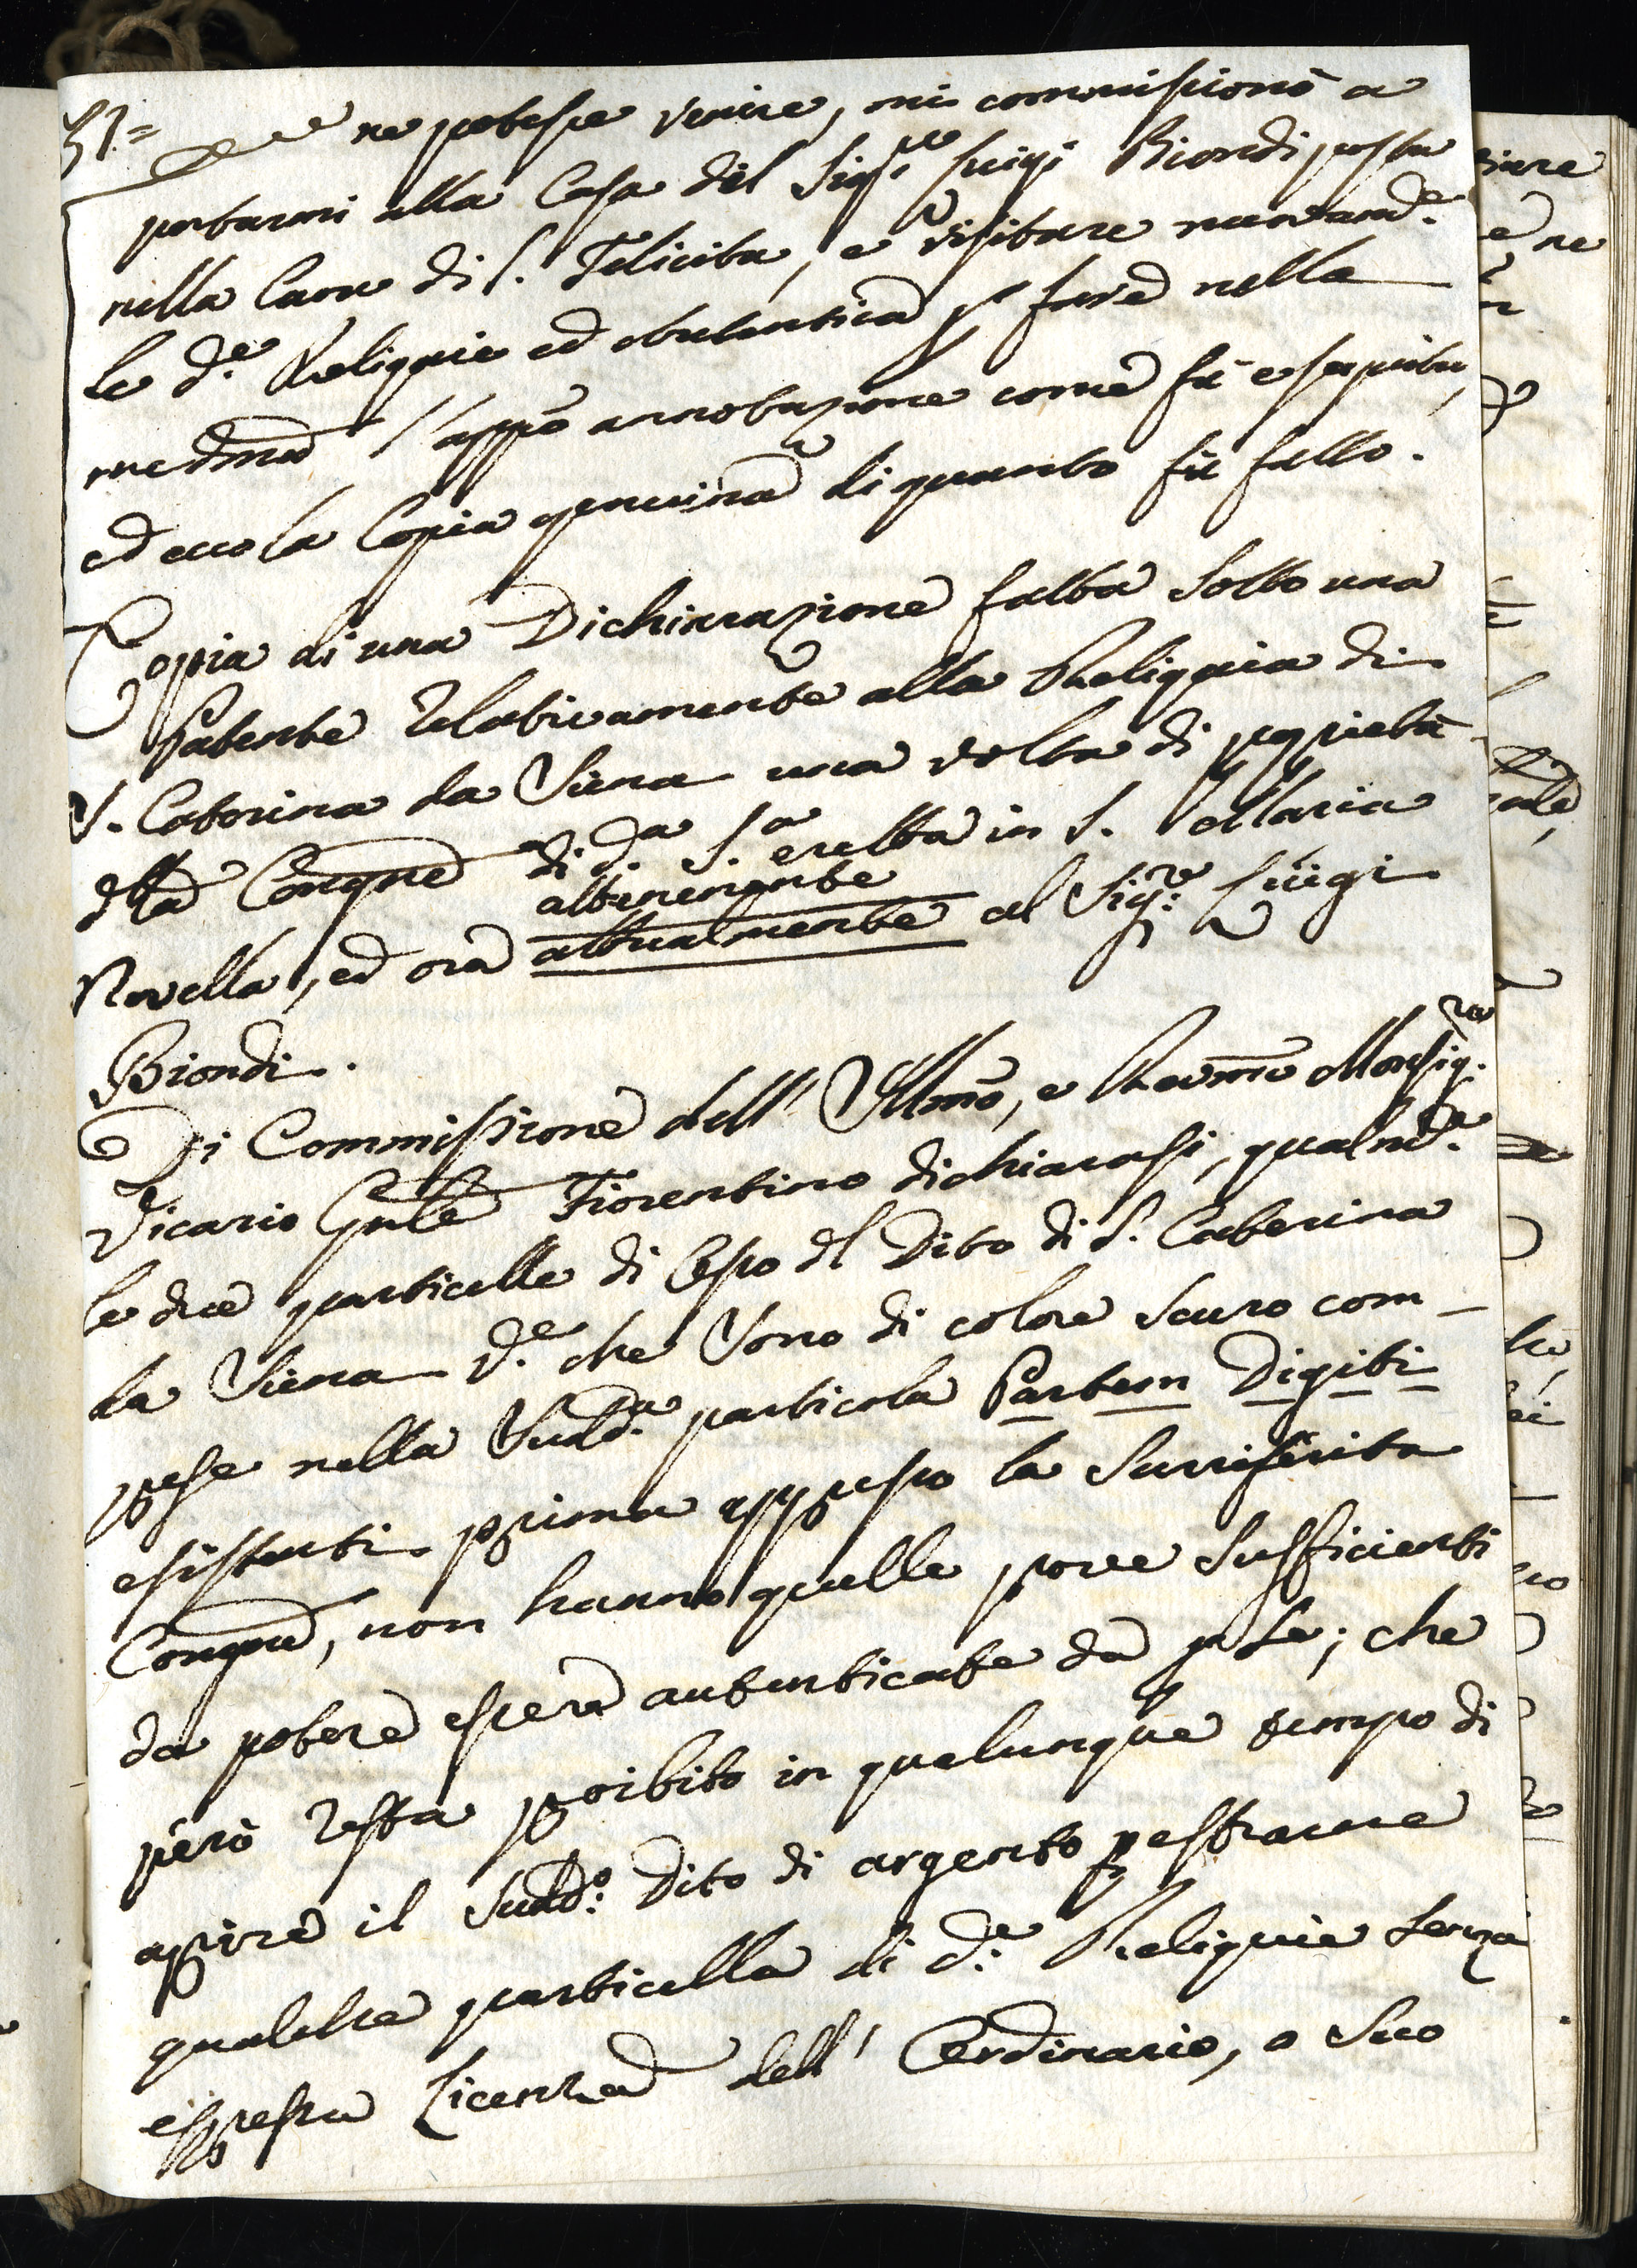 ne potesse venire, mi commissionò a
portarmi alla Casa del Sig.re Luigi Biondi posta
nella Cura di S. Felicita, e visitare nuovam.e
le d.e Reliquie ed autentica p. fare nella
medma l'appo annotazione come fù eseguito,
ed ecco la Copia genuina di quanto fù fatto.
Copia di una Dichiarazione fatta sotto una
Patente relativamente alla Reliquia di
S. Caterina da Siena una volta di ppietà
della Congne di d.a S.a eretta in S. Maria
attenente
Novella, ed ora attualmente al Sig.re Luigi
Biondi.
Di Commissione dell' Illmo, e Revmo Monsig.re
Vicario Gnle Fiorentino dichiarasi, qualm.e
le due particelle di Osso del Dito di S. Caterina
da Siena V.e che sono di colore scuro com-
prese nella Sudd.a particola Partem Digiti
esistenti prima appresso la Surriferita
Congne, non hanno quelle prove sufficienti
da potere essere autenticate da p se; che
però resta proibito in qualunque tempo di
aprire il Sudd.o Dito di argento p estrarne
qualche particella di d.e Reliquie senza
espressa Licenza dell' Ordinario, o suo